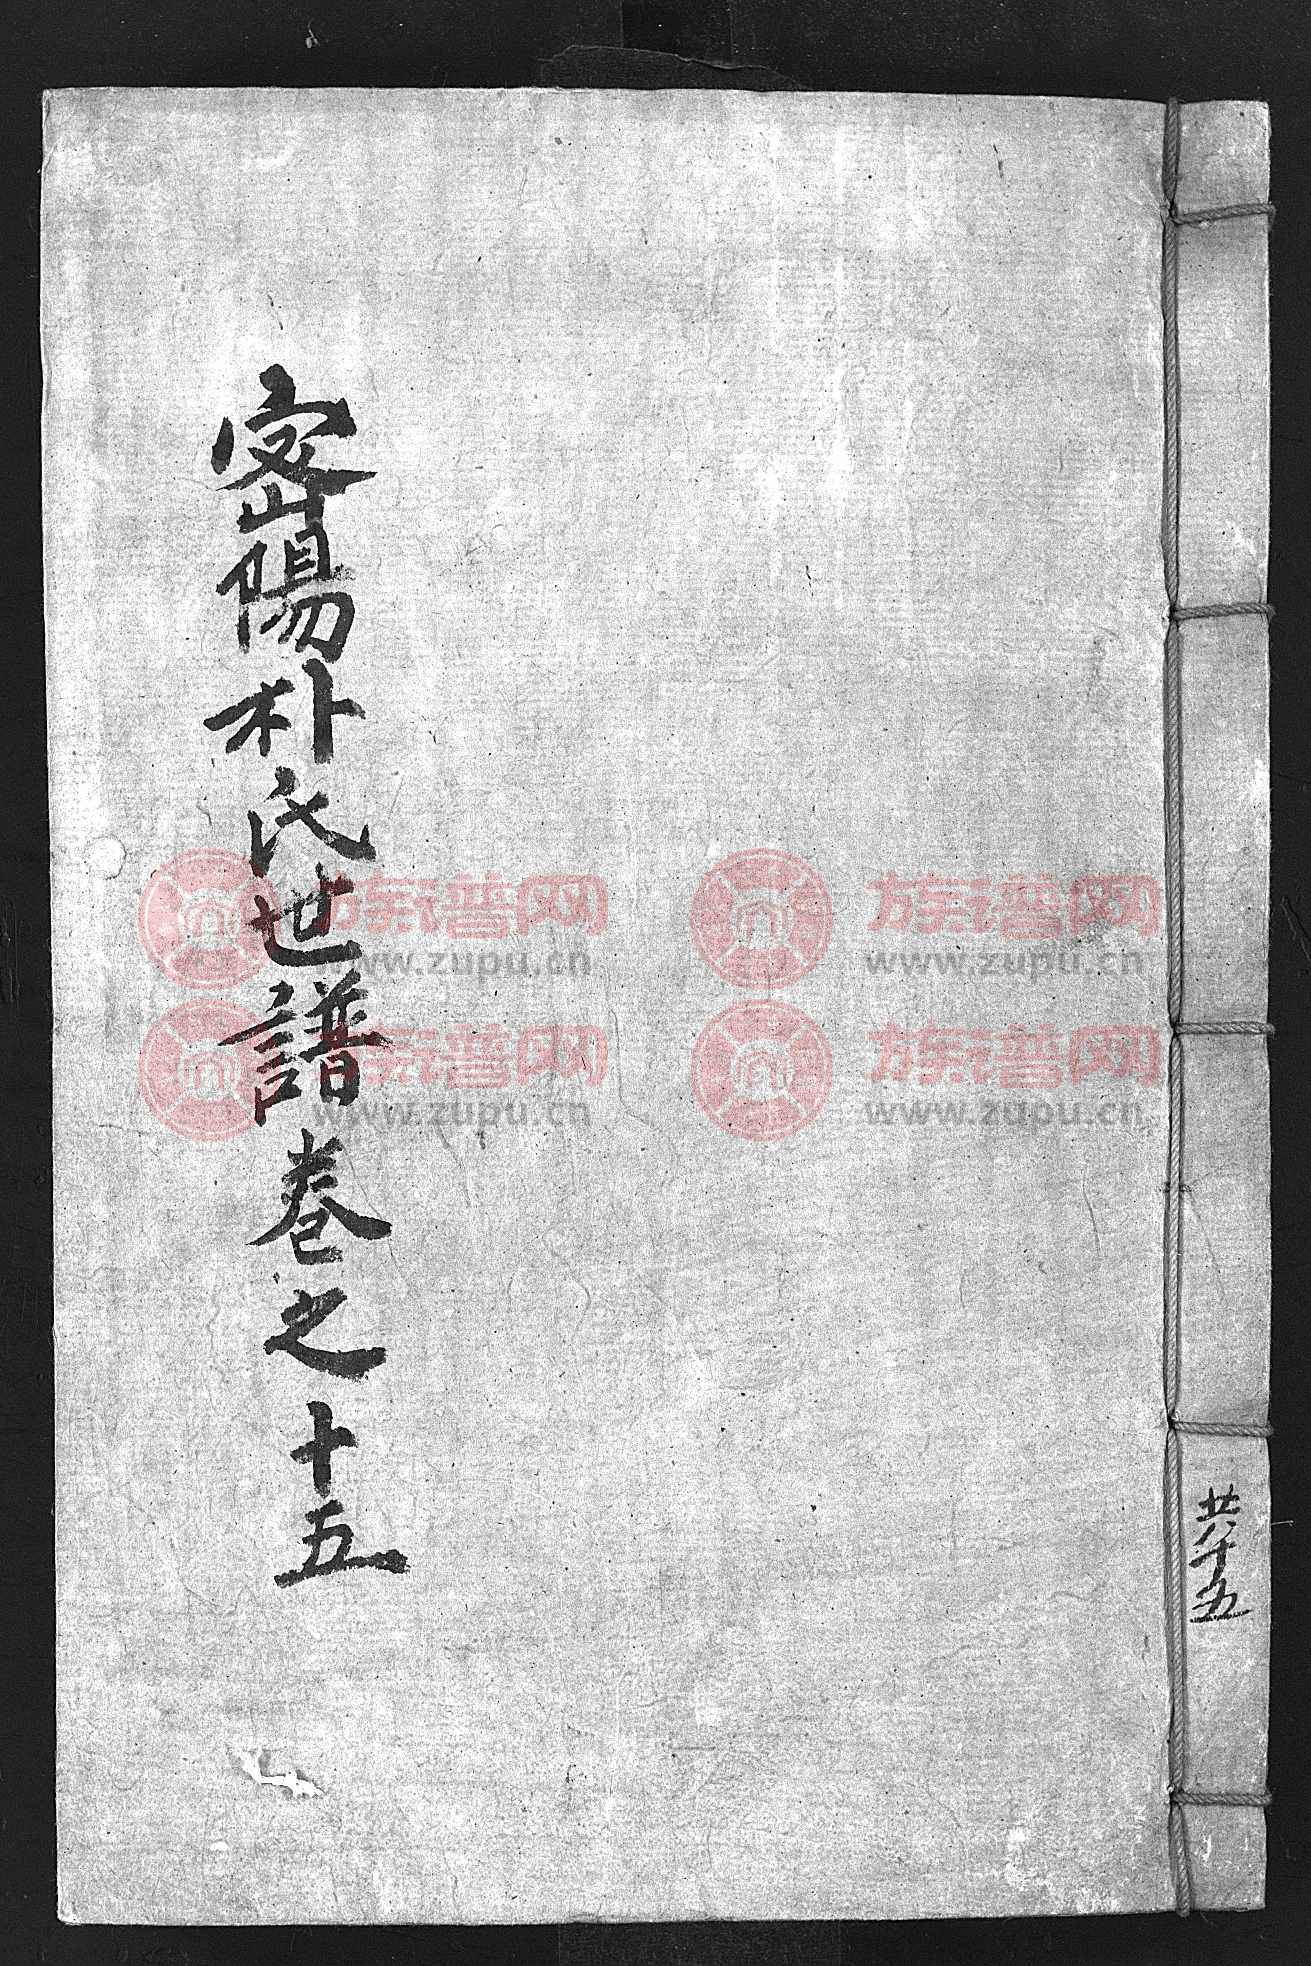 密陽朴氏世譜卷之十五
共八十五
族谱网
www.zupu.cn
族谱网
www.zupu.cn
族谱网
www.zupu.cn
族谱网
www.zupu.cn